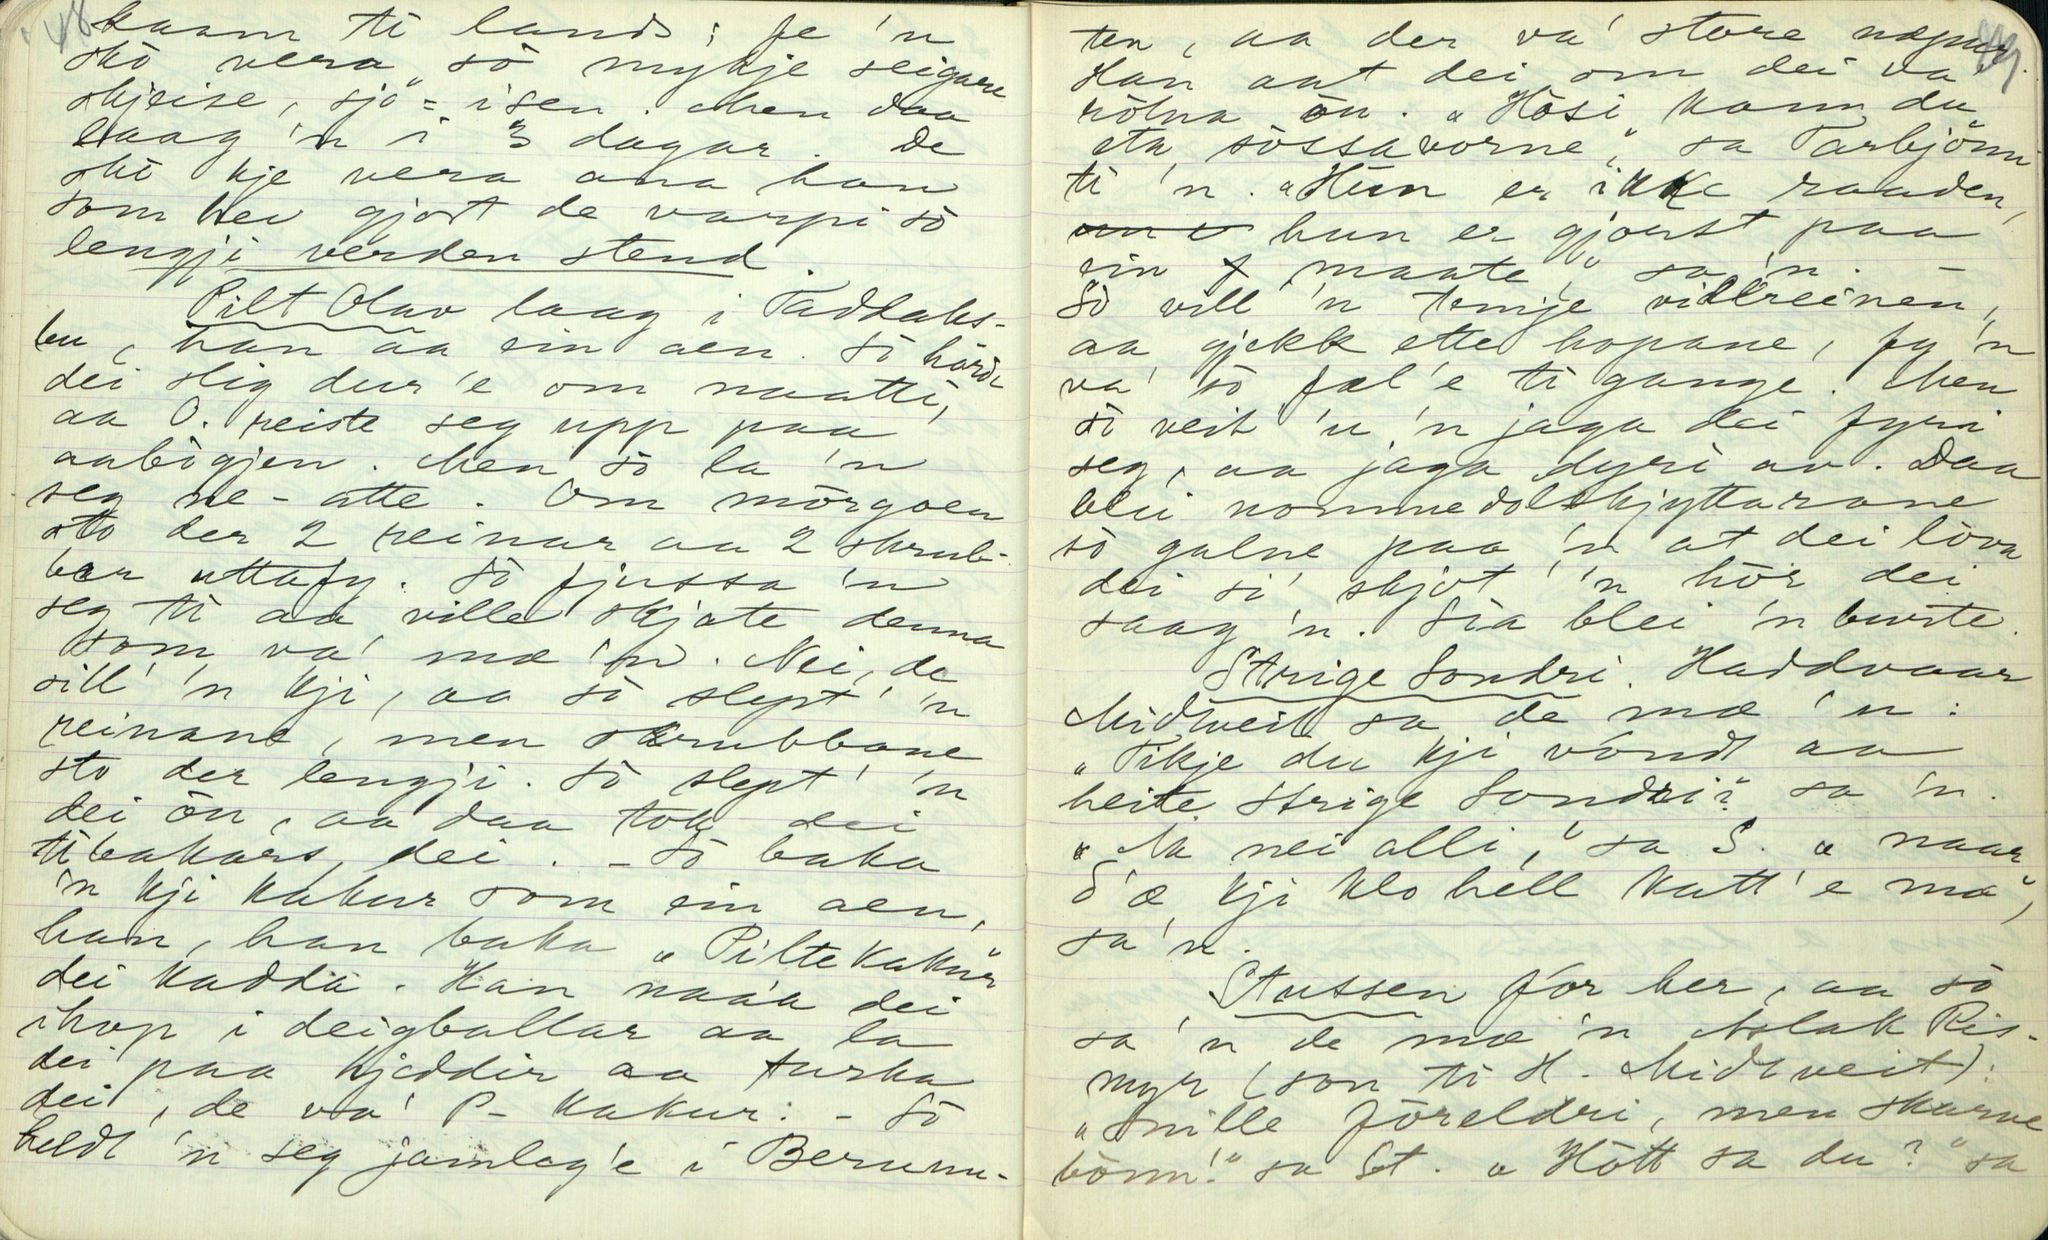 48
kaam ti lands; fe 'n
sko vera" so mykje seigare
skjeise, sjo-isen. Men daa
laag 'n i 3 dagar. De
ski kje vera ana han
som hev gjort de varpi so
lengji verden stend.
Pilt Olav laag i Taddaks-
bu, han aa ein aen. So hörde
dei slig dur'e om naatti,
aa O. reiste seg upp paa
aabigjen. Men so la 'n
seg ne-atte. Om mörgoen
sto der 2 reinar aa 2 skrub-
bar uttafy. So fjussa 'n
seg ti aa ville skjote denna
som va' mæ 'n. Nei, de
sill' 'n kji, aa so slept' 'n
reinane, men skrubbane
sto der lengji. So slept' 'n
dei ön, aa daa tok dei
tibakars, dei. - So baka
'n kji kakur som ein aen,
han, han baka "Piltekakur"
dei kadda. Han naa'a dei
ihop i deigballar aa la
dei paa kjeddir aa turka
dei, de va' P-kakur: - So
heldt 'n seg jamleg'e i Berunu-
49
ten, aa der va' store næpur.
Han aat dei om dei va'
rotna ön. "Hosi kann du
eta sossavorne," sa Tarbjönn
ti 'n. "Hun er ikke raaden,
hun er gjörst paa
ein maate," sa 'n. -
So vill 'n temje villreinen,
aa gjekk ette hopane, fy 'n
va' so fæl'e ti gange. Men
so veit 'u 'n jaga dei fyri
seg, aa jaga dyri av. Daa
blei nommedolskjyttarane
so galne paa 'n at dei löva
dei si' skjot' 'n hör dei
saag 'n. Sia blei 'n burte.
Strige Sondri. Haddvaar
Midtveit sa de mæ 'n:
"Tikje du kji vondt aa
heite Strige Sondri?" sa 'n.
"Na nei alli," sa S. "naar
d'æ kji klo hell katt'e mæ",
sa 'n.
Stussen for her, aa so
sa 'n de mæ 'n Aslak Ris-
myr (son ti H. Midtveit):
"Snille föreldri, men skarve
bönn!" sa St. "Hött sa du?" sa